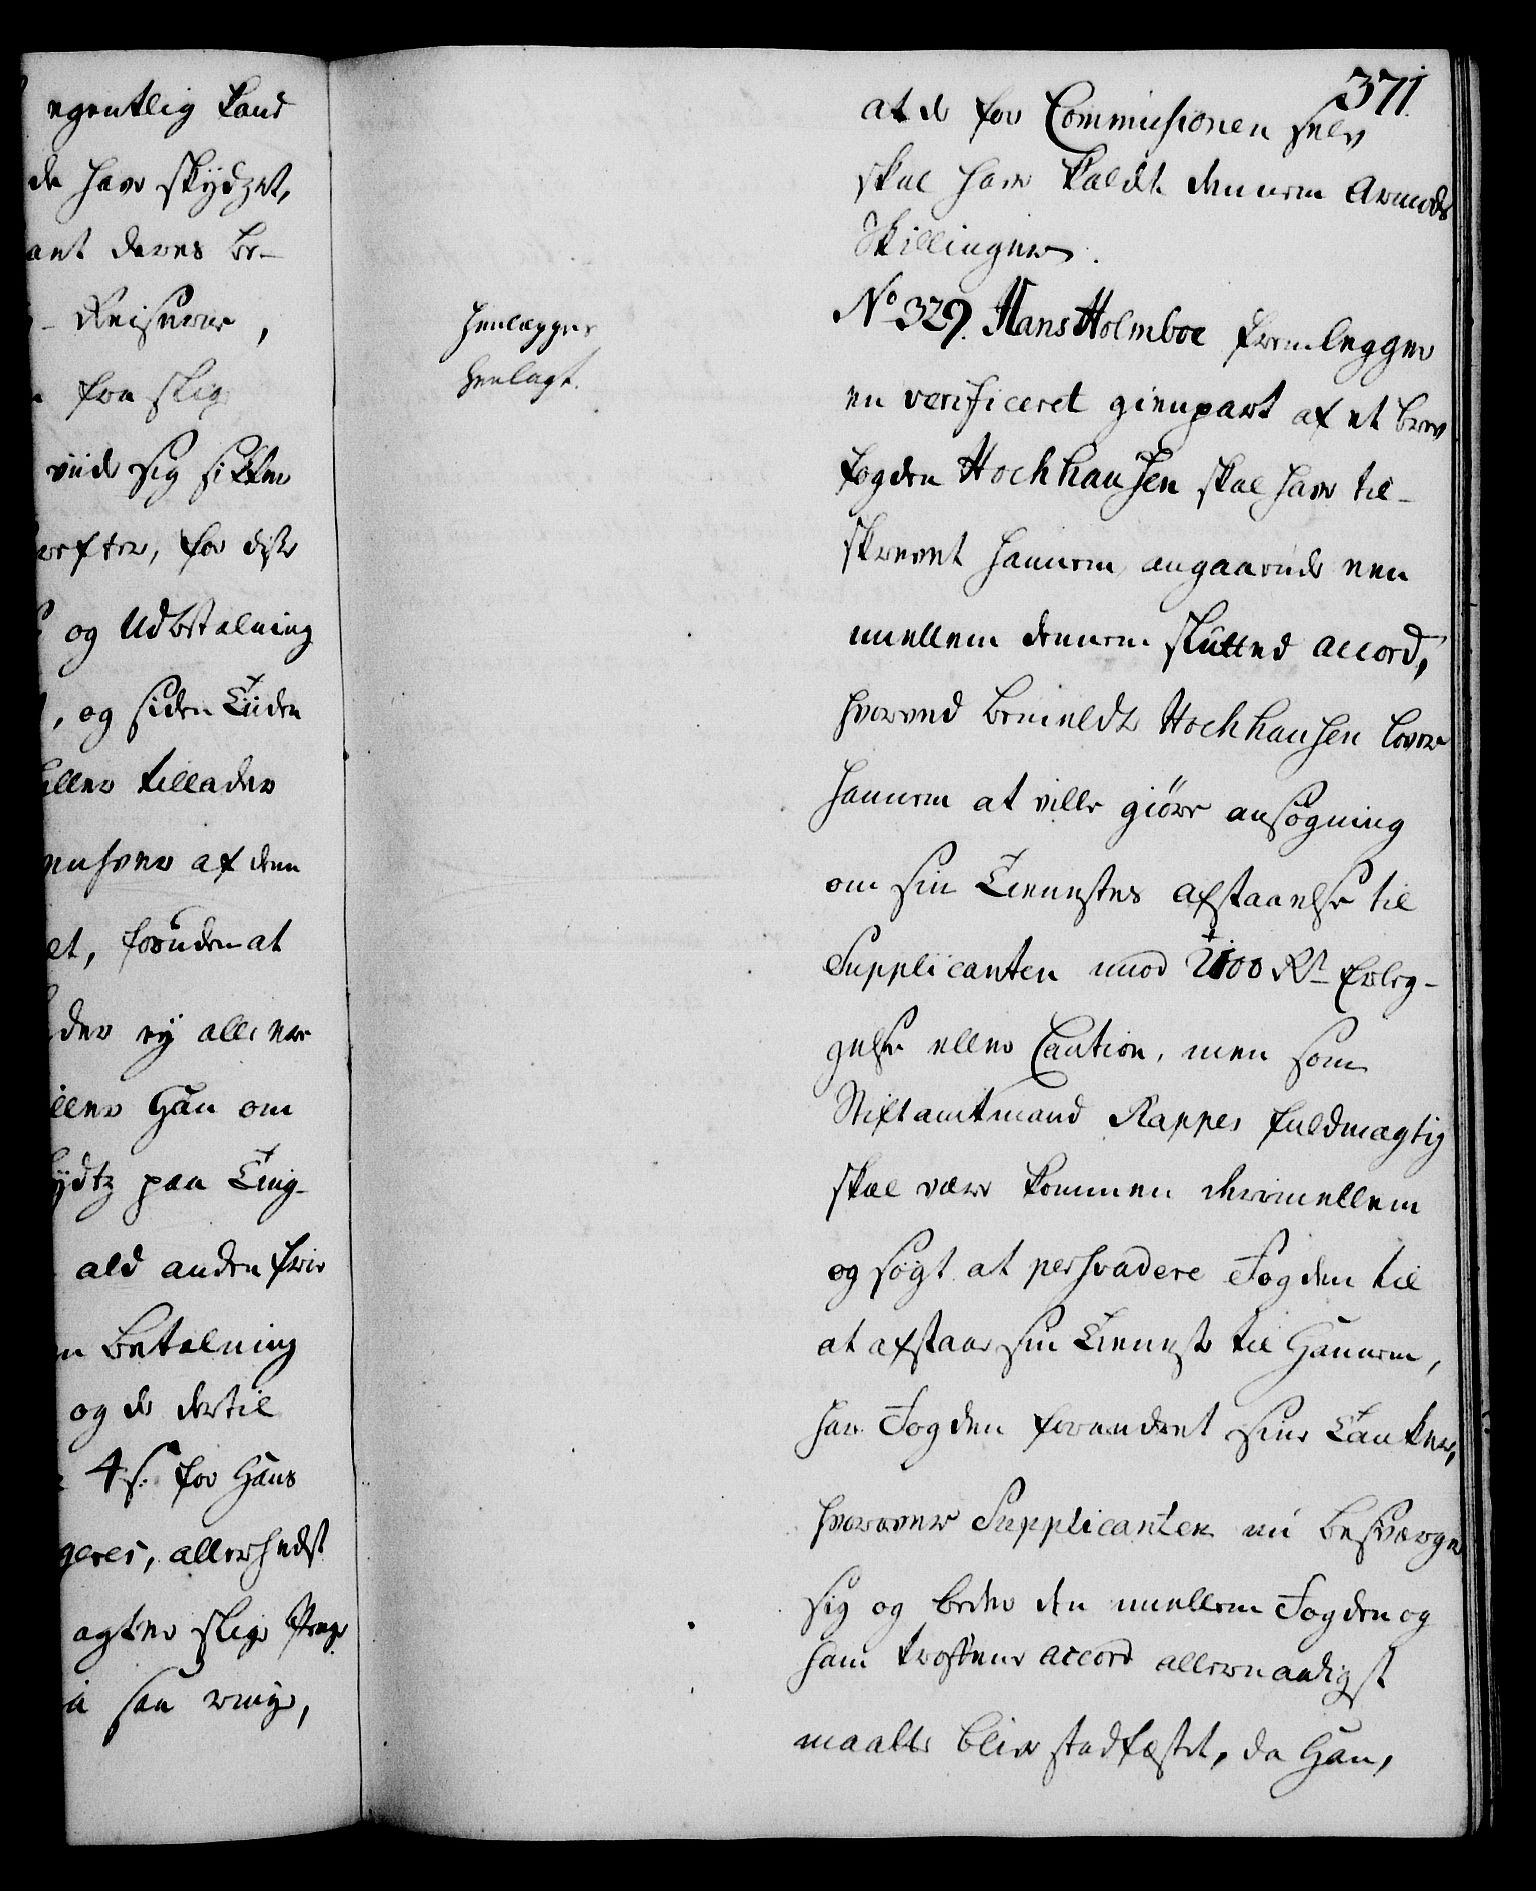 egentlig kand
de have skydzet,
deres be-
Reiserne,
fra slig
viide sig sikker
efter, for disse
og Udbetalning
, og siden Tiiden
eller tillader
enhver af dem
et, foruden at
der ey alle ere
eller Han om
ydtz paa Ting-
ald anden frie
Betalning
og de dertil
4 s: for Hans
geres, allerhelst
agter slige Penge
saa ringe,
371.
at de for Commissionen selv
skal have kaldt dennem Armods
Skillinger.
Henlægges
henlagt.
No 329. Hans Holmboe fremlegger
en verificeret gienpart af et brev
fogden Hochhausen skal have til-
skrevet hannem, angaaende een
mellem dennem slutted accord,
hvorved bemeldte Hochhausen lover
hannem at ville giøre ansøgning
om sin Tienestes afstaaelse til
Supplicanten imod 2100 Rd Erleg-
gelse eller Caution, men som
Stiftamtmand Rappes fuldmægtig
skal være kommen derimellem
og søgt at persvadere Fogden til
at afstaae sin Tieneste til Hannem,
har Fogden forandret sine Tanker,
hvorover Supplicanten nu besværger
sig og beder den imellem Fogden og
ham trofne accord allernaadigst
maatte blive stadfæstet, da Han,